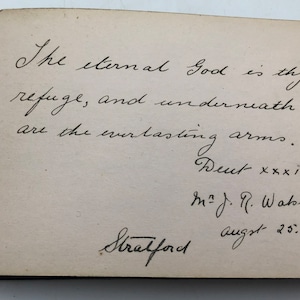 The eternal God is thy
refuge, and underneath
are the everlasting arms.
Deut xxxi
Mr J. R. Wats
augst 25.
Stratford